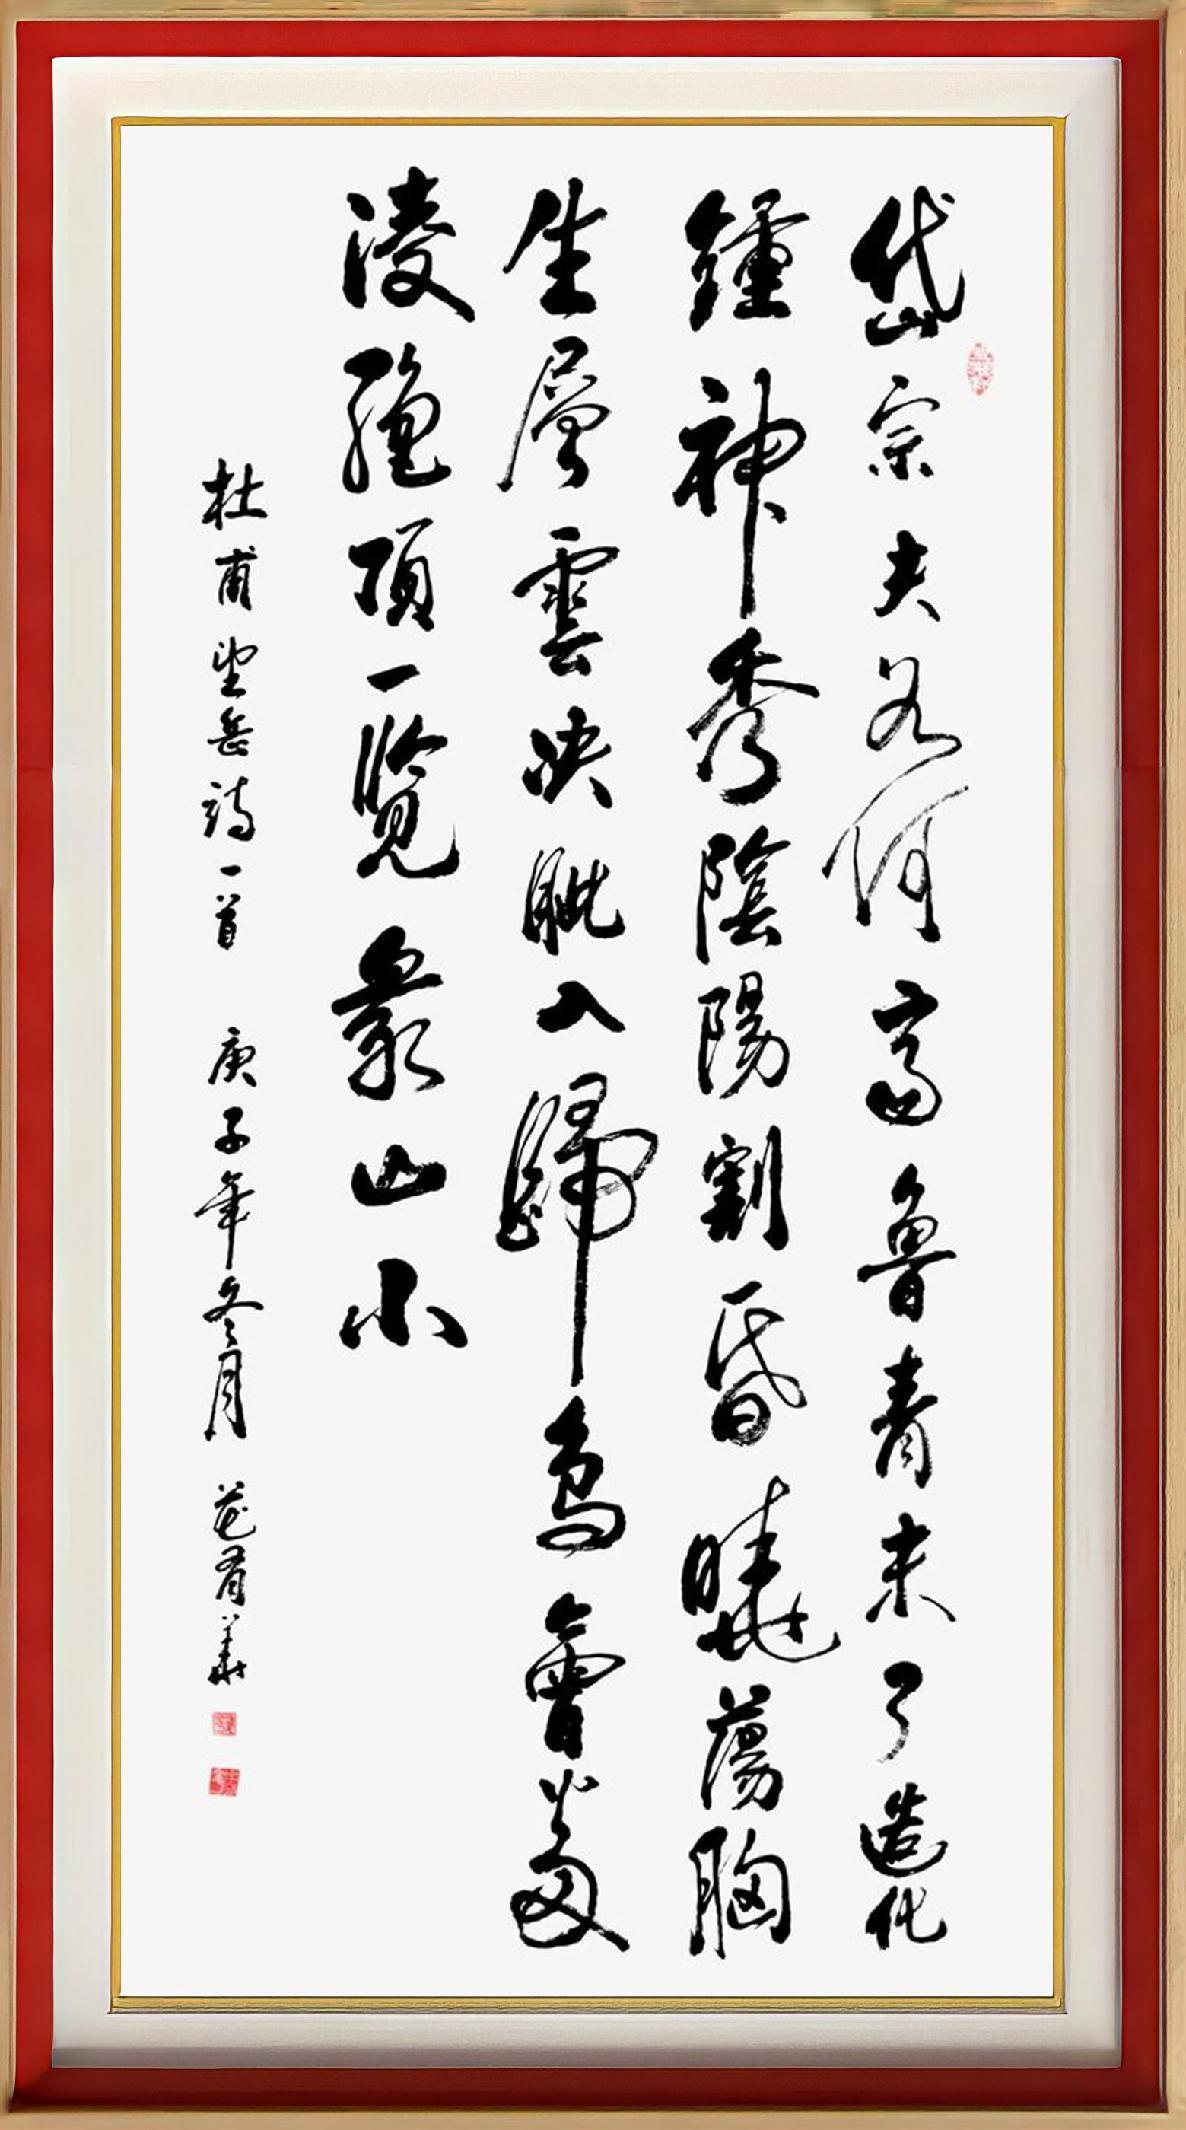 岱宗夫如何齊魯青未了造化
鍾神秀陰陽割昏曉蕩胸
生層雲決眦入歸鳥會當
淩絕頂一覽衆山小
杜甫望岳詩一首 庚子年冬月